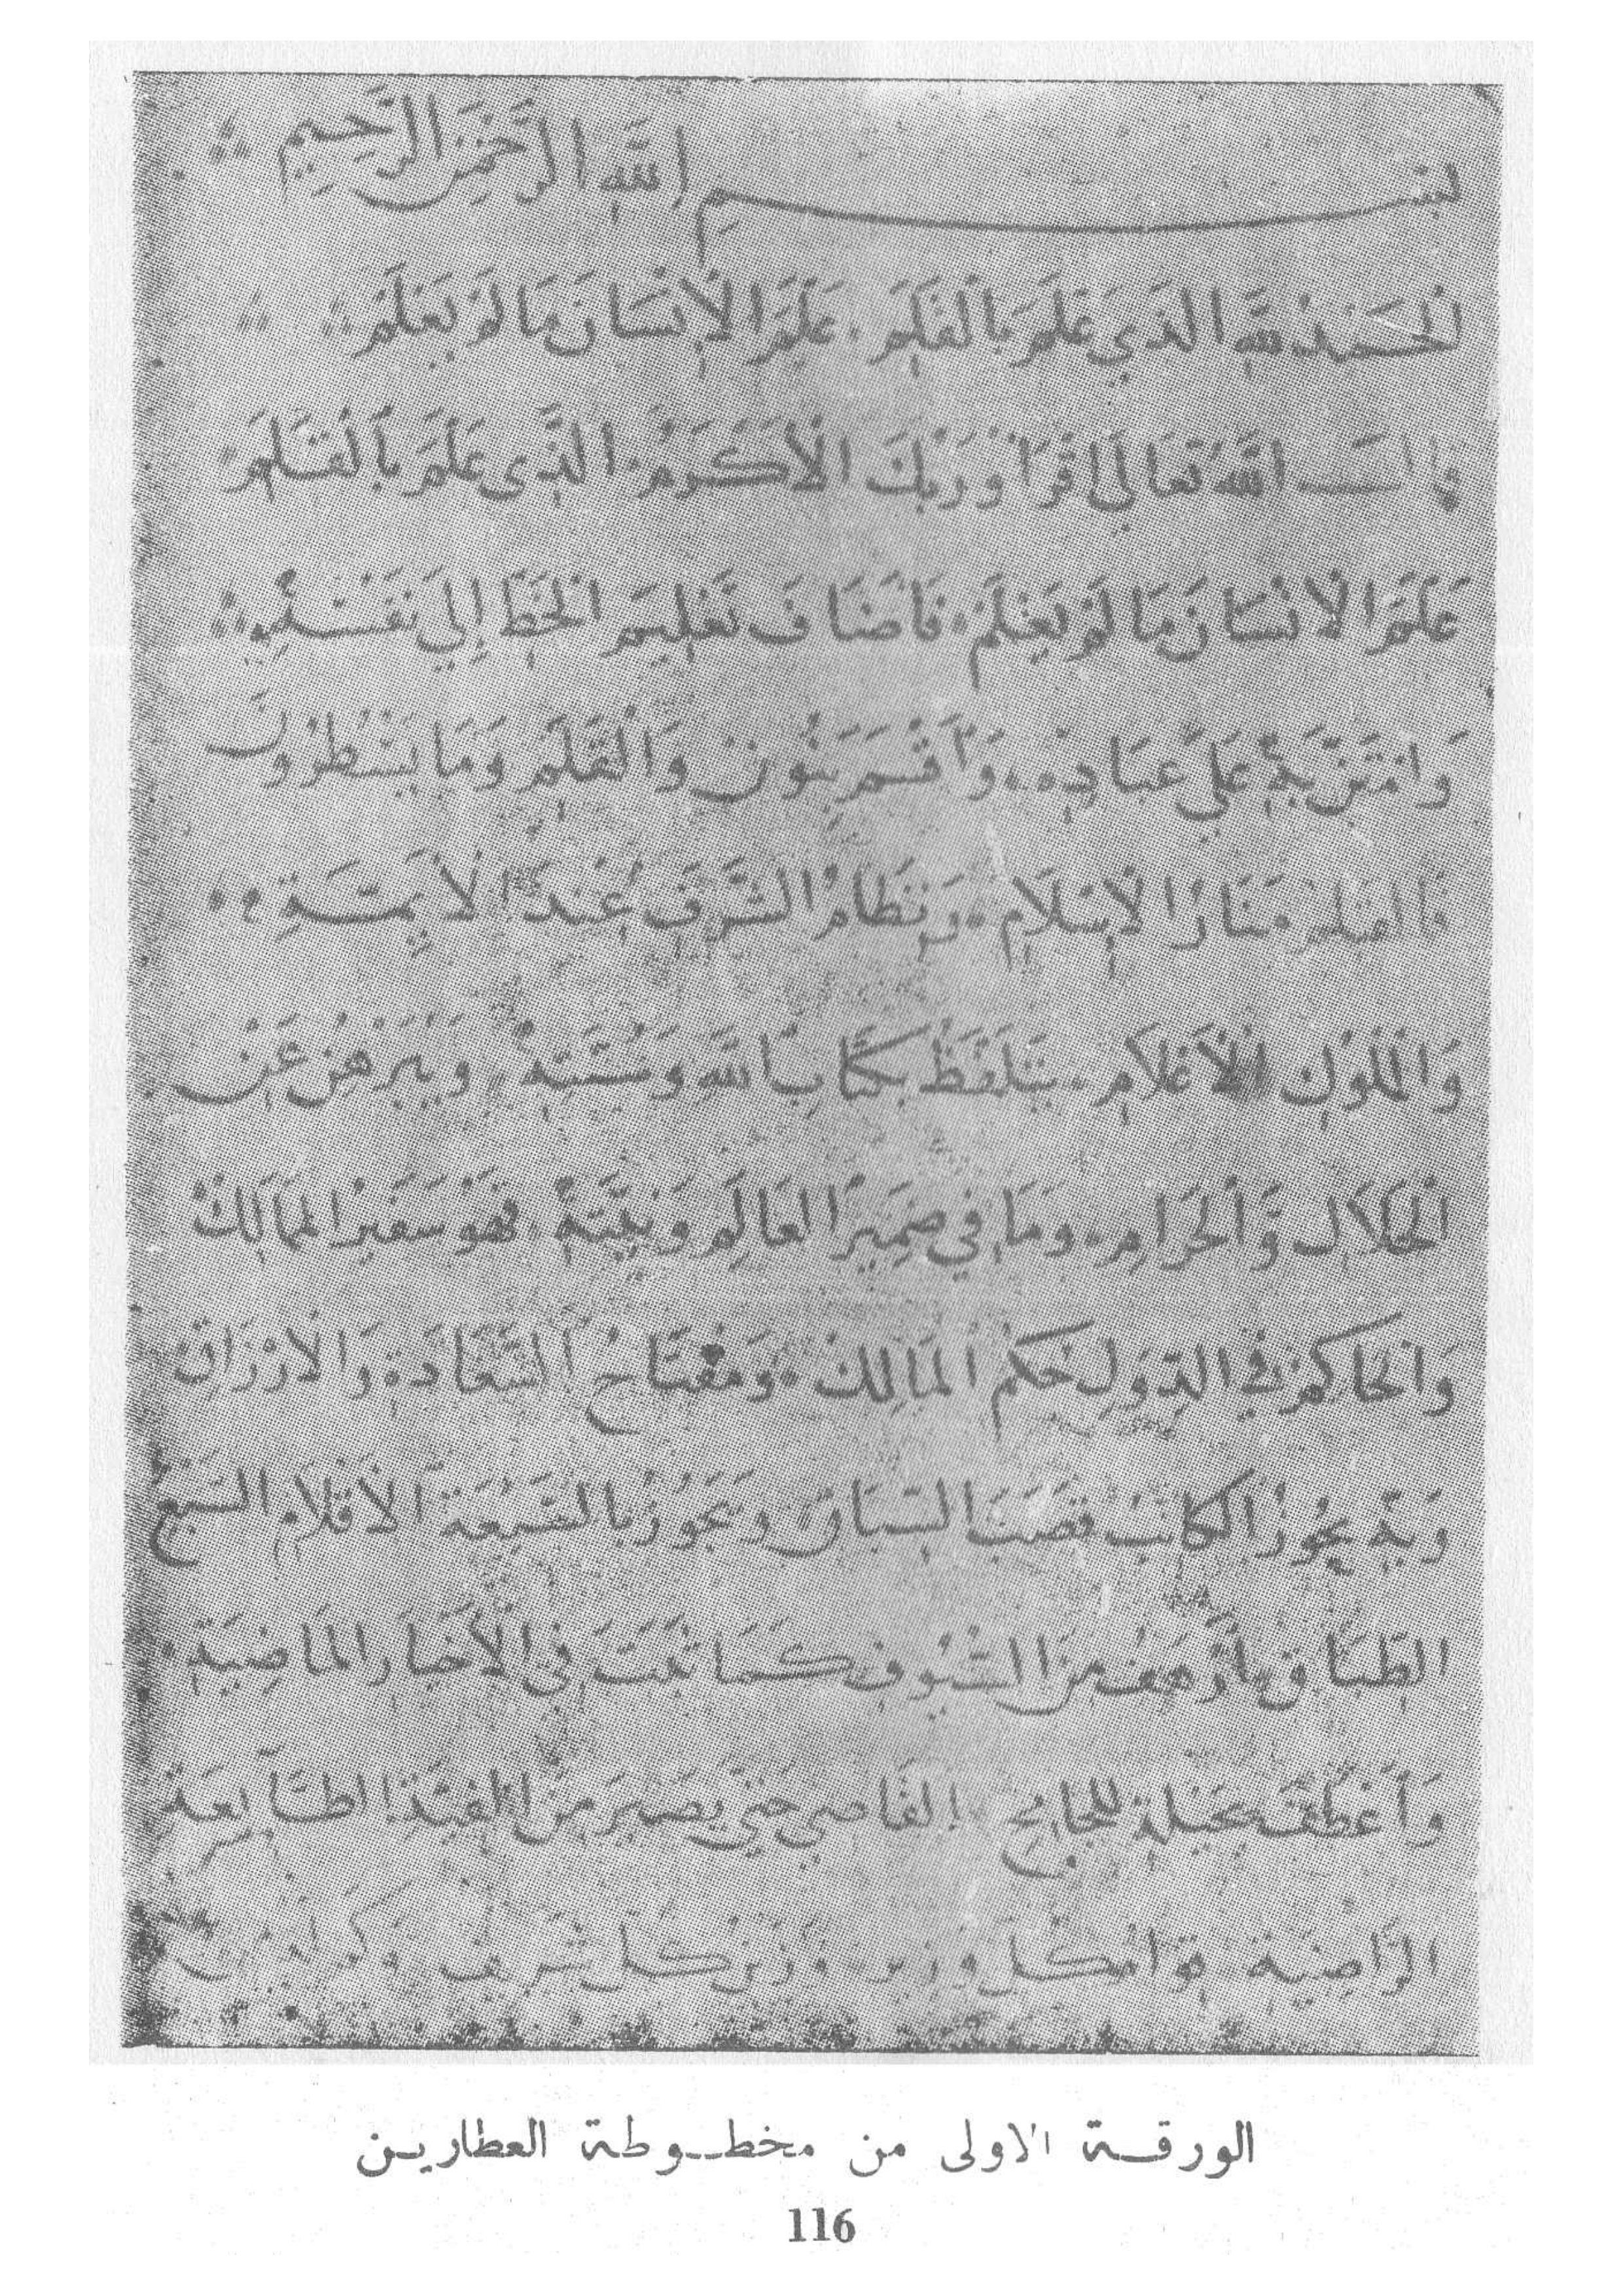 بسم الله الرحمن الرحيم
الحمد لله الذي علم بالقلم علم الإنسان ما لم يعلم
قال الله تعالى اقرا وربك الأكرم الذي علم بالقلم
علم الانسان ما لم يعلم فأضاف تعليم الخط إلى نفسه
وامتن به على عباده وأقسم بنون والقلم وما يسطرون
فالقلم منار الإسلام ونظام الشرف عند الأيمة
والملوك الأعلام يتلفظ بكتاب الله وسنته ويبرهن عن
الحلال والحرام وما في ضمير العالم ونيته فهو سفير الممالك
والحاكم في الدول حكم المالك ومفتاح السعادة والأرزاق
وبه يحوز الكاتب قصب السباق ويجوز بالسبعة الأقلام السبع
الطباق بأرهف من السيوف كما ثبت في الأخبار الماضية
وأعطف بحيلة للجامح القاصي حتى يصير من الفية الطايعة
الراضية قوام كل وزير وزين كل شريف
الورقة الاولى من مخطوطة العطارين
116